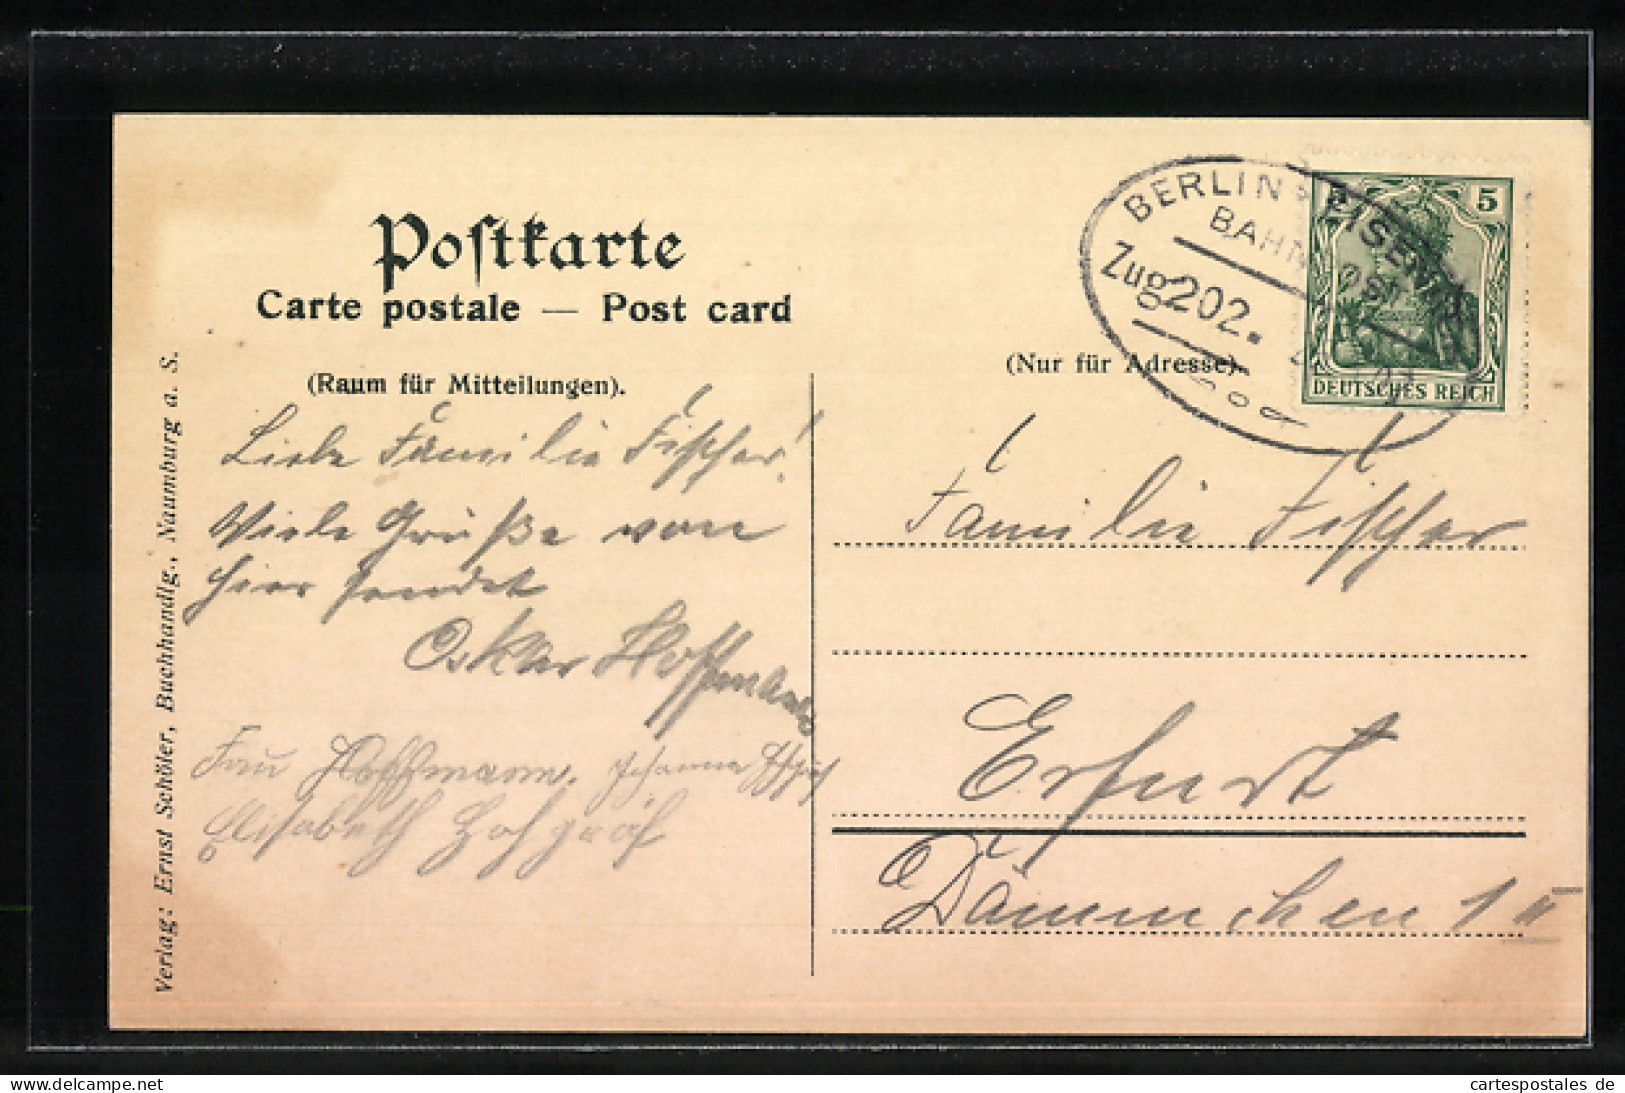 Postkarte
Carte postale — Post card
(Raum für Mitteilungen).
(Nur für Adresse).
BERLIN * EISENACH
BAHNPOST
Zug 202.
5
DEUTSCHES REICH
Liebe Familie Fischer!
Viele Grüße von
hier sendet
Oskar
Frau Hoffmann.
Elisabeth
Familie Fischer
Erfurt
Dämmchen 1 II
Verlag: Ernst Schöler, Buchhandlg., Naumburg a. S.
www.cartespostales.eu
cartespostales de